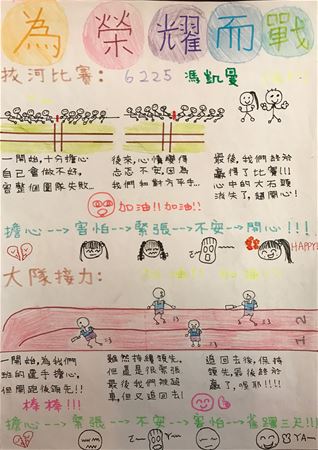 為榮耀而戰
拔河比賽: 6225 馮凱曼
一開始,十分擔心
自己會做不好,
害整個團隊失敗…
後來,心情變得
忐忑不安,因為
我們和對方平手…
最後,我們終於
贏得了比賽!!!
心中的大石頭
消失了,超開心!
加油!!加油!!
擔心-->害怕-->緊張-->不安-->開心!!!
HAPPY!
大隊接力:
一開始,為我們
班的選手擔心,
但開跑後領先!!
雖然持續領先,
但還是很緊張
最後我們被超
車,但又追回去!
追回去後,保持
領先,最後終於
贏了,耶!!!!
棒棒!!!
擔心-->緊張-->不安-->害怕-->雀躍三尺!!!
YA~
YA~